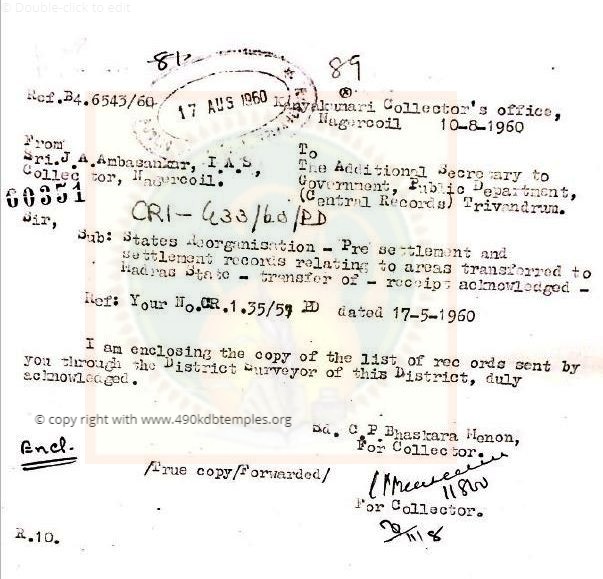 Double-click to edit
812 89
Ref.B4.6543/60
17 AUG 1960
Kanyakumari Collector's office,
Nagercoil 10-8-1960
From
Sri.J.A.Ambasankar, I.A.S.,
Collec tor, Nagercoil.
To
The Additional Secre ary to
Government, Public Department,
(Central Records) Trivandrum.
60351
Sir,
CR1-433/60/PD
Sub: States Reorganisation - Pre settlement and
settlement records relating to areas transferred to
Madras State - transfer of - receipt acknowledged -
Ref: Your No.CR.1.35/59 PD dated 17-5-1960
I am enclosing the copy of the list of rec ords sent by
you through the District Surveyor of this District, duly
acknowledged.
© copy right with www.490kdbtemples.org
Sd. C.P.Bhaskara Menon,
For Collector.
Encl.
/True copy/Forwarded/
For Collector.
R.10.